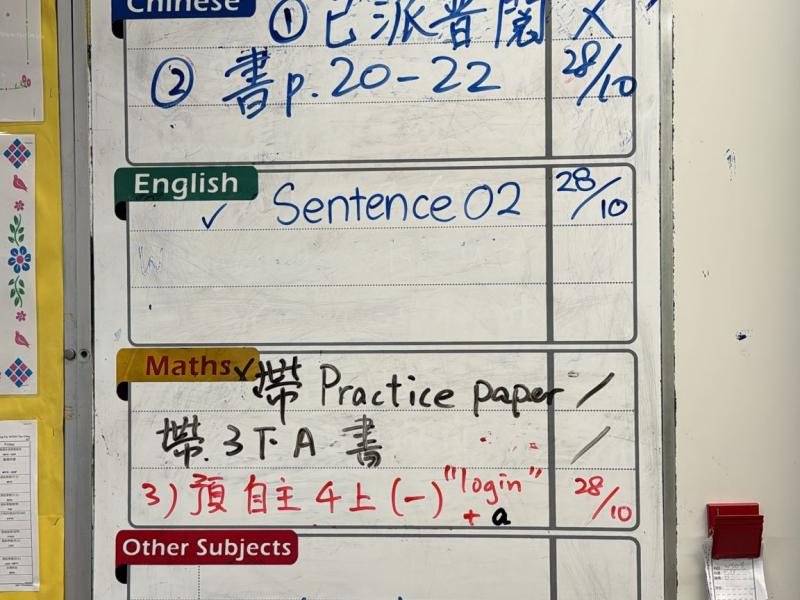 Chinese
① 已派普閱 X
② 書p.20-22 28/10
English
✓ Sentence 02 28/10
Maths
✓帶 Practice paper /
帶.3下A 書 /
3) 預自主4上(一)"login" 28/10
+ a
Other Subjects